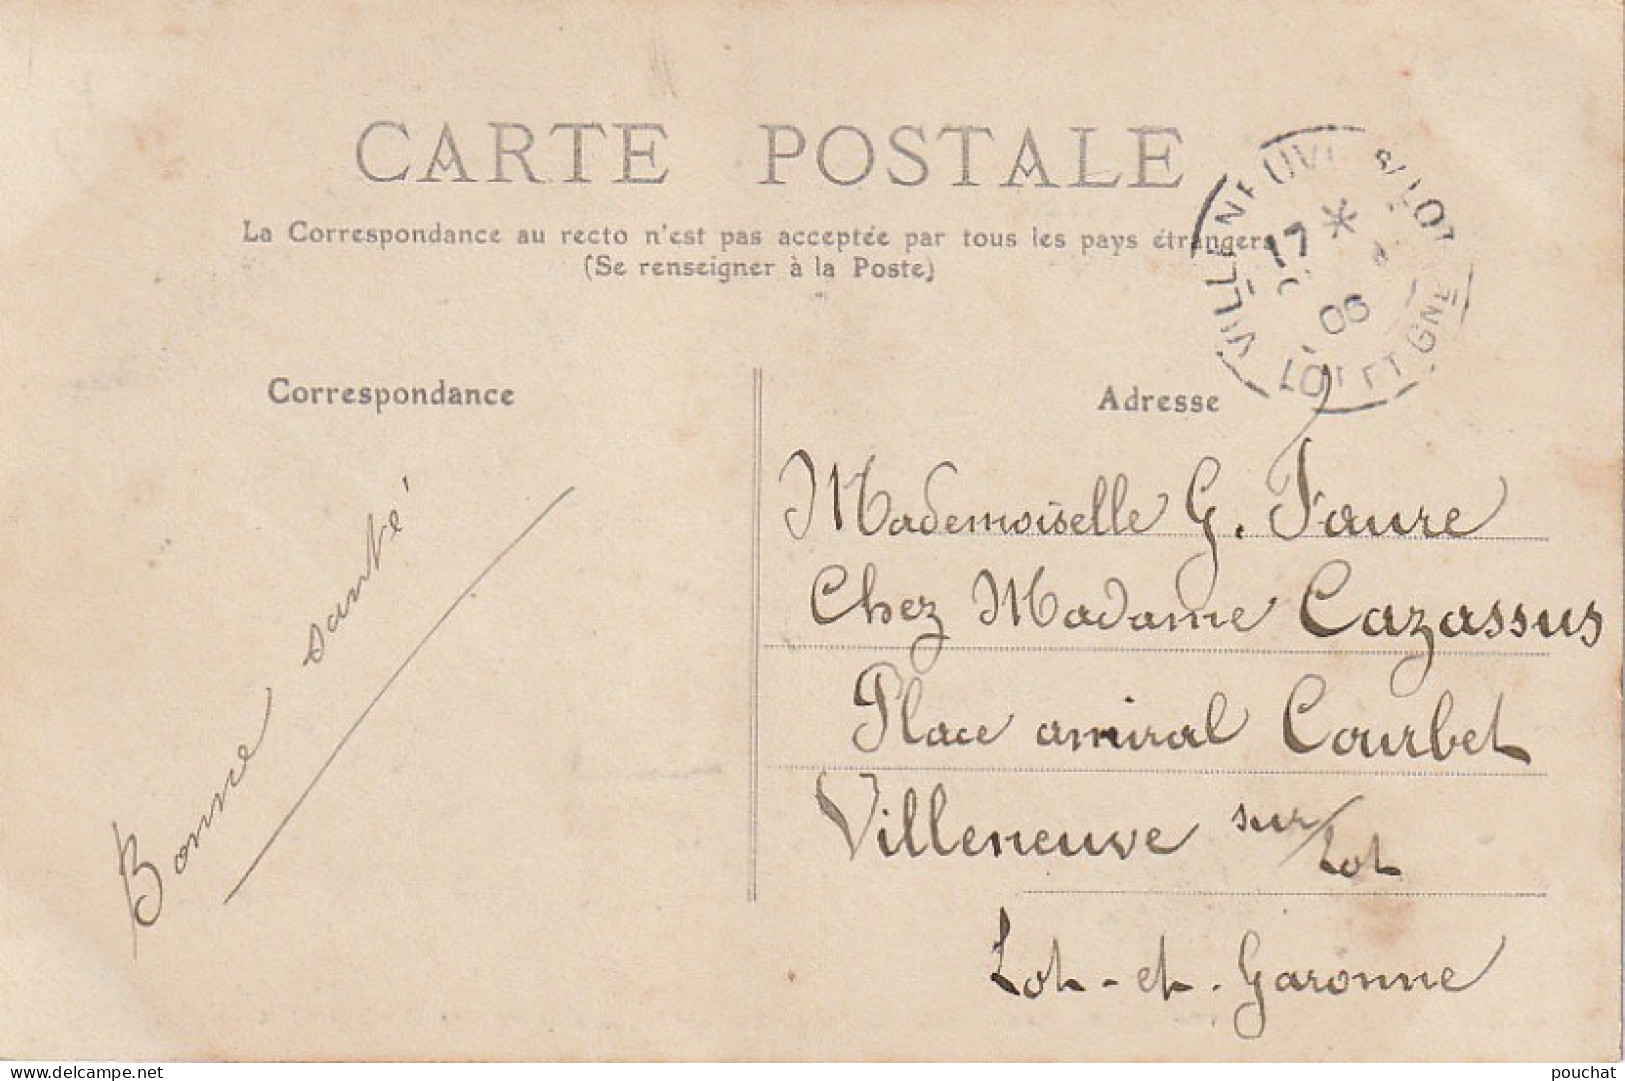 CARTE POSTALE
La Correspondance au recto n'est pas acceptée par tous les pays étrangers
(Se renseigner à la Poste)
VILLENEUVE S/LOT
17
06
LOT ET GNE
Correspondance
Adresse
Bonne santé
Mademoiselle G. Faure
Chez Madame Cazassus
Place amiral Courbet
Villeneuve sur Lot
Lot-et-Garonne
www.delcampe.net
pouchat